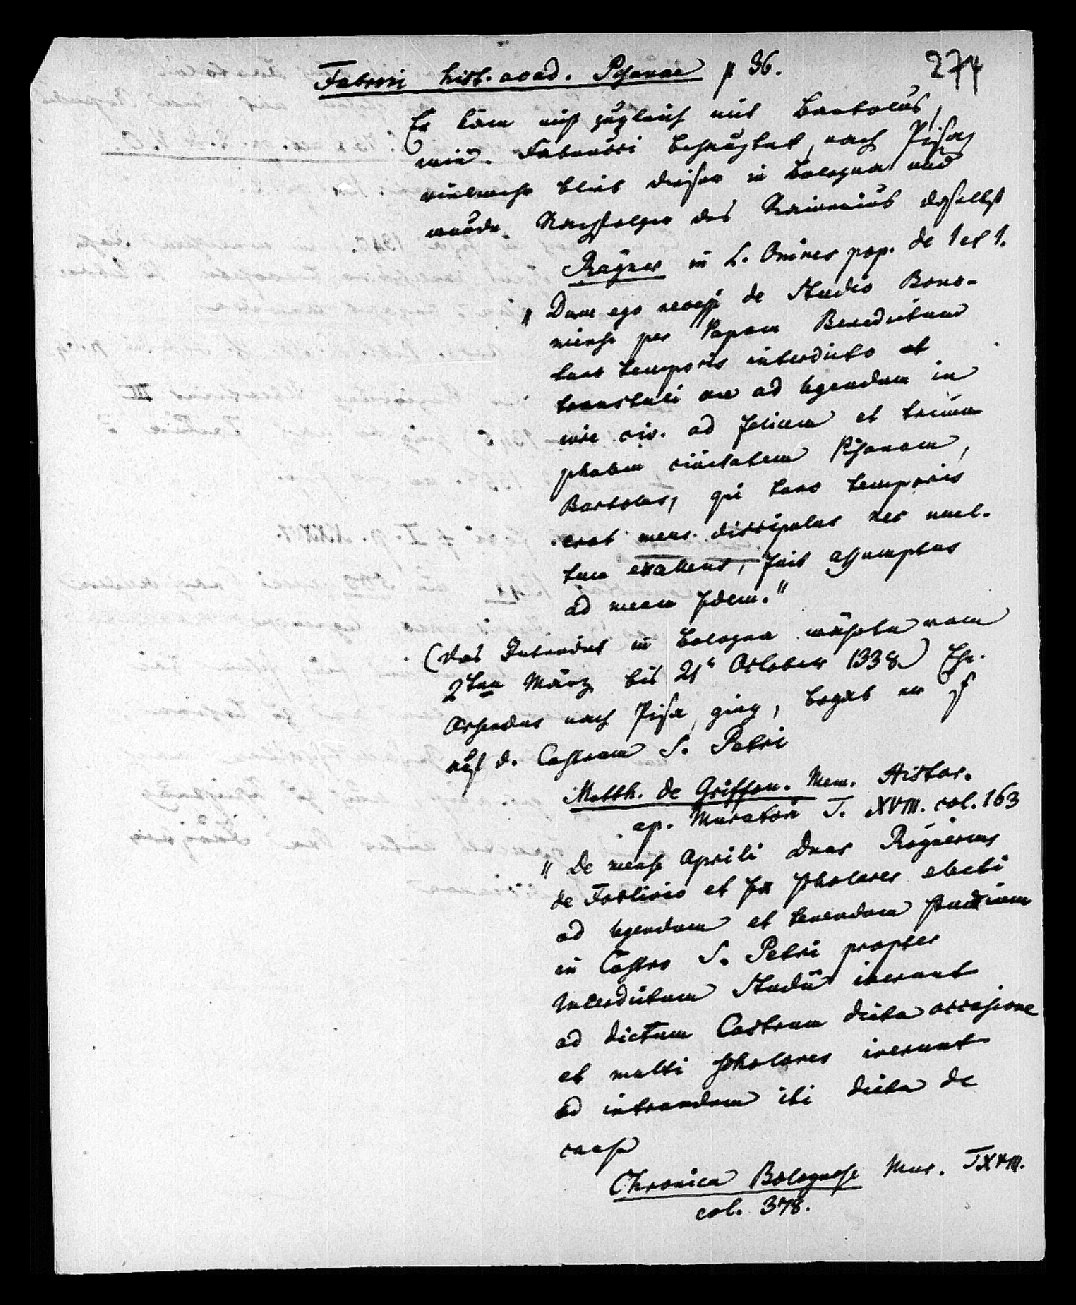 274
Fabroni hist. acad. Pisanae p 36.
Er kam nicht zugleich mit Bartolus,
wie Fabrucci behauptet, nach Pisa,
vielmehr blieb dieser in Bologna und
wurde Nachfolger des Rainerius daselbst
Rayner in L. Omnes pop. de I et I.
" Dum ego recessi de Studio Bono-
niense per Papam Benedictum
tunc temporis interdicto et
translati me ad legendum in
iure civ. ad felicem et trium
phalem civitatem Pisanam,
Bartolus, qui tunc temporis
erat meus discipulus nec mul-
tum excellens, fuit assumptus
ad meam sedem."
(Das Interdict in Bologna währte vom
2ten März bis 21t October 1338.) Ehe
nach Pisa ging, begab er sich
auf d. Castrum S. Petri
Matth. de Griffon. Mem. Histor.
ap. Muratori T. XVIII. col. 163
" De mense Aprili Dnus Raynerius
de Forlivio et sex scholares electi
ad legendum et tenendum studium
in Castro S. Petri propter
Interdictum Studii iverunt
ad dictum Castrum dicta occasione
et multi scholares iverunt
ad intrandum ibi dicta de
causa
Chronica Bolognese Mur. T XVIII.
col. 378.